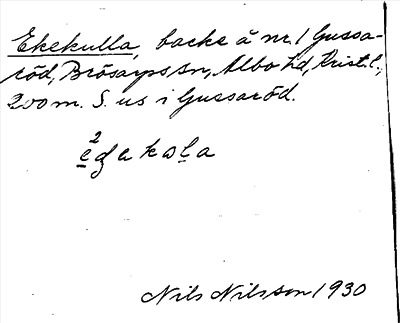 Ekekulla, backe å nr. 1 Gussa-
röd, Brösarps sn, Albo hd, Krist. l.,
200 m. S. us i Gussaröd.
Nils Nilsson 1930